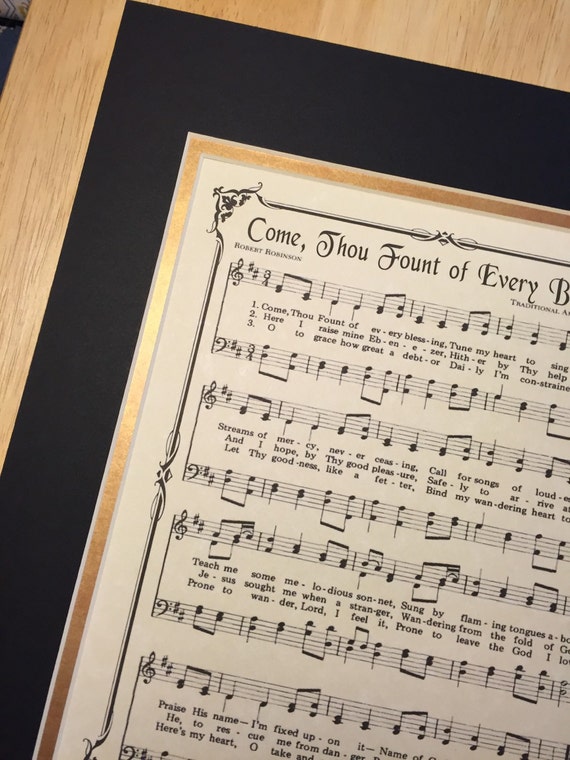 Come, Thou Fount of Every B
ROBERT ROBINSON
TRADITIONAL A
3
4
1. Come, Thou Fount of ev-ery bless-ing, Tune my heart to sing
2. Here I raise mine Eb-en-e-zer, Hith-er by Thy help
3. O to grace how great a debt-or Dai-ly I'm con-straine
3
4
Streams of mer-cy, nev-er ceas-ing, Call for songs of loud-e
And I hope, by Thy good pleas-ure, Safe-ly to ar-rive a
Let Thy good-ness, like a fet-ter, Bind my wan-dering heart to
Teach me some me-lo-dious son-net, Sung by flam-ing tongues a-bo
Je-sus sought me when a stran-ger, Wan-dering from the fold of Go
Prone to wan-der, Lord, I feel it, Prone to leave the God I lo
Praise His name—I'm fixed up-on it— Name of
He, to res-cue me from dan-ger,
Here's my heart, O take and